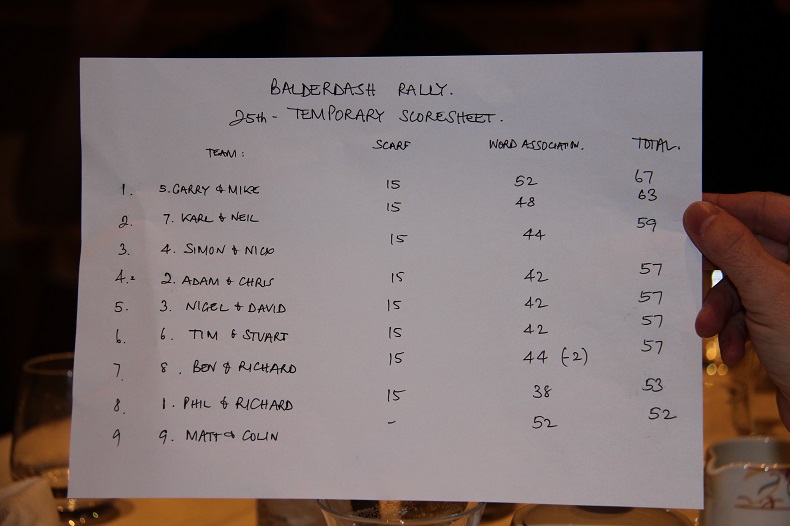 BALDERDASH RALLY.
25th - TEMPORARY SCORESHEET.
TEAM: SCARF WORD ASSOCIATN. TOTAL.
1. 5. GARRY & MIKE 15 52 67
2. 7. KARL & NEIL 15 48 63
3. 4. SIMON & NICK 15 44 59
4.= 2. ADAM & CHRIS 15 42 57
5. 3. NIGEL & DAVID 15 42 57
6. 6. TIM & STUART 15 42 57
7 8. BEN & RICHARD 15 44 (-2) 57
8. 1. PHIL & RICHARD 15 38 53
9 9. MATT & COLIN - 52 52